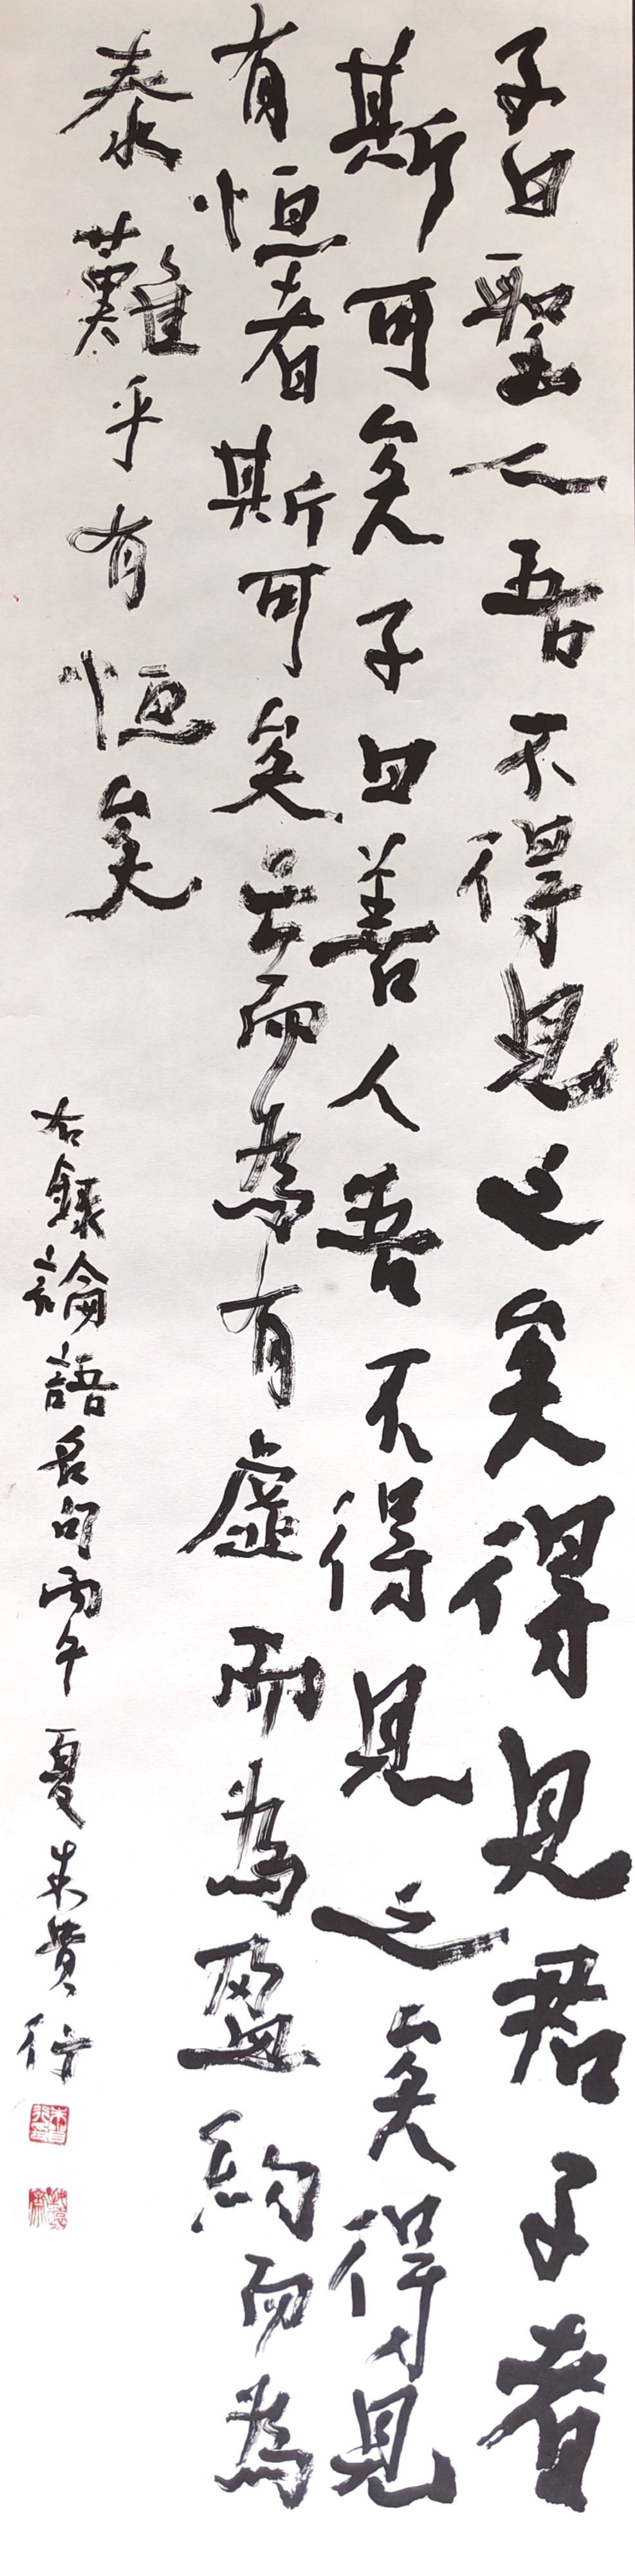 子曰聖人吾不得見之矣得見君子者
斯可矣子曰善人吾不得見之矣得見
有恒者斯可矣亡而為有虛而為盈約而為
泰難乎有恒矣
右録論語名句丙午夏朱貴行